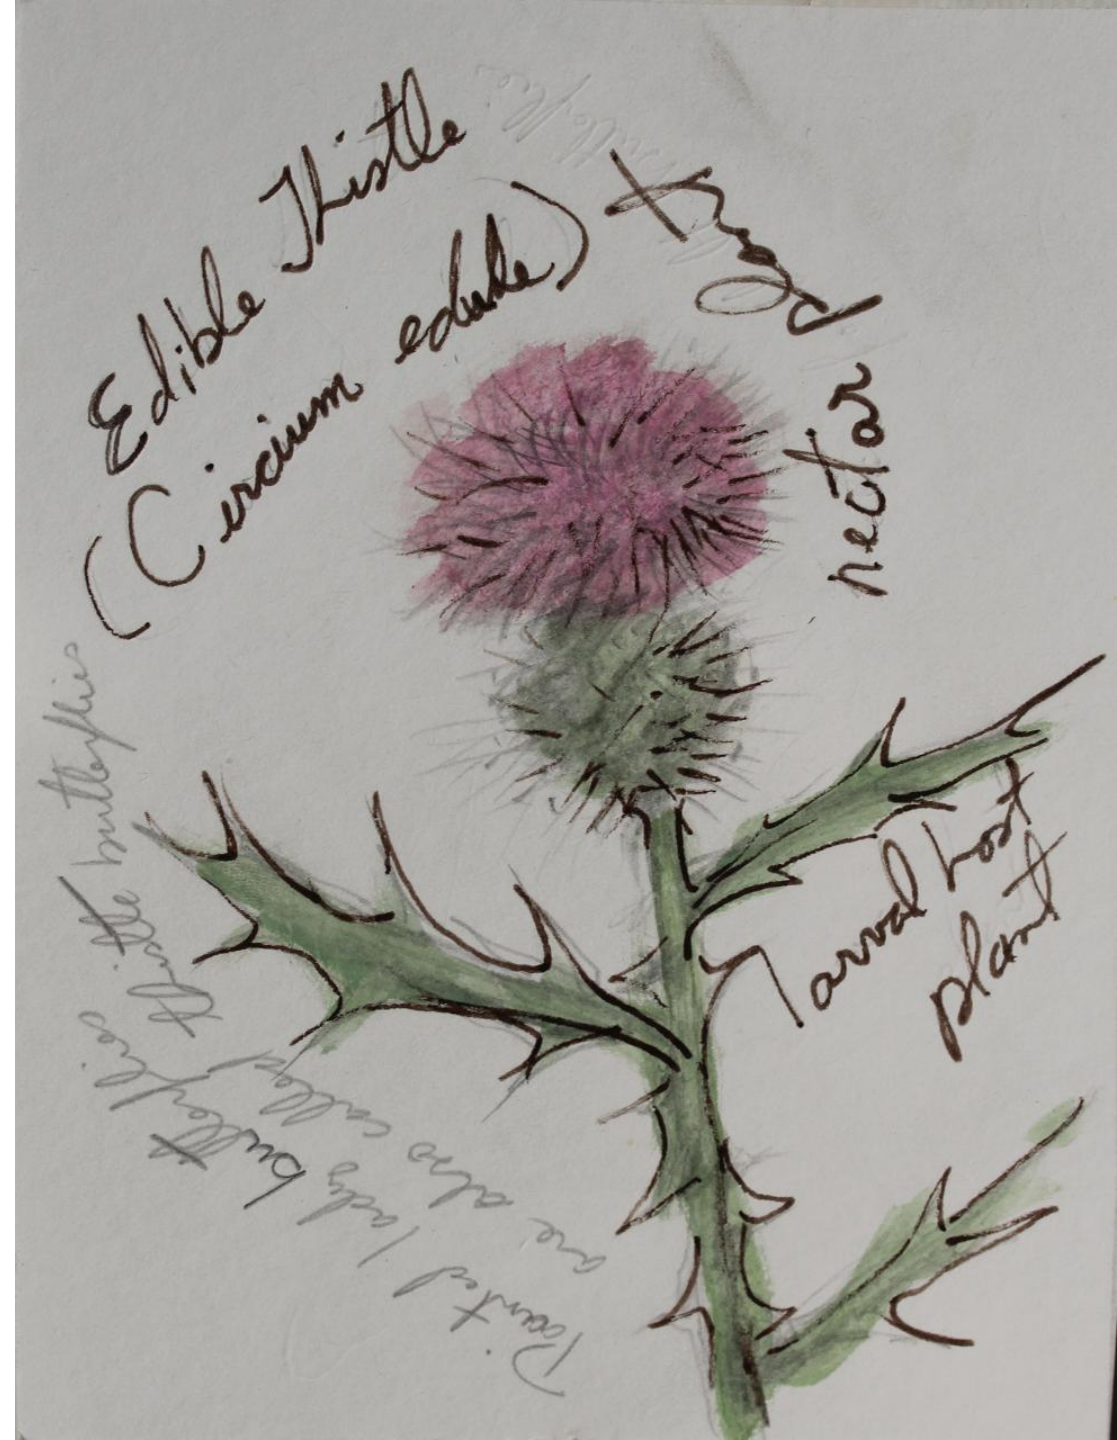 Edible Thistle
(Circium edule)
nectar plant
larval host
plant
Painted lady butterflies
are also called thistle butterflies
butterflies